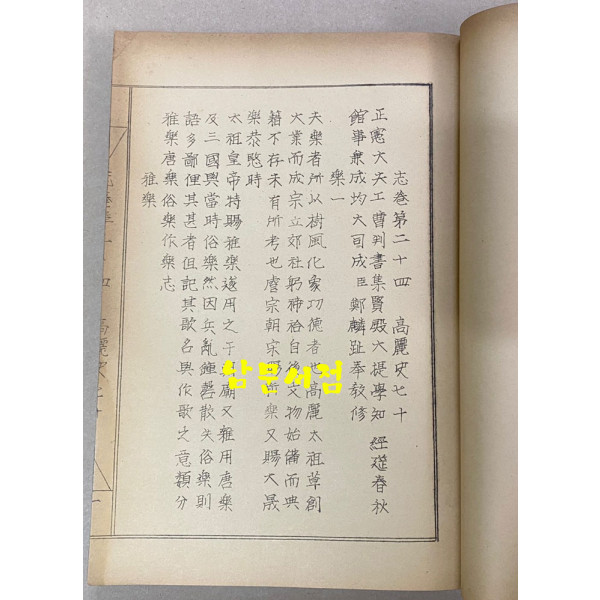 志卷第二十四 高麗史七十
正憲大夫工曹判書集賢殿大提學知 經筵春秋
館事兼成均大司成臣鄭麟趾奉敎修
樂一
夫樂者所以樹風化象功德者也高麗太祖草創
大業而成宗立郊社躬禘祫自後文物始備而典
籍不存未有所考也睿宗朝宋賜新樂又賜大晟
樂恭愍時
太祖皇帝特賜雅樂遂用之于朝廟又雜用唐樂
及三國與當時俗樂然因兵亂鍾磬散失俗樂則
語多鄙俚其甚者但記其歌名與作歌之意類分
雅樂唐樂俗樂作樂志
雅樂
삼문서점